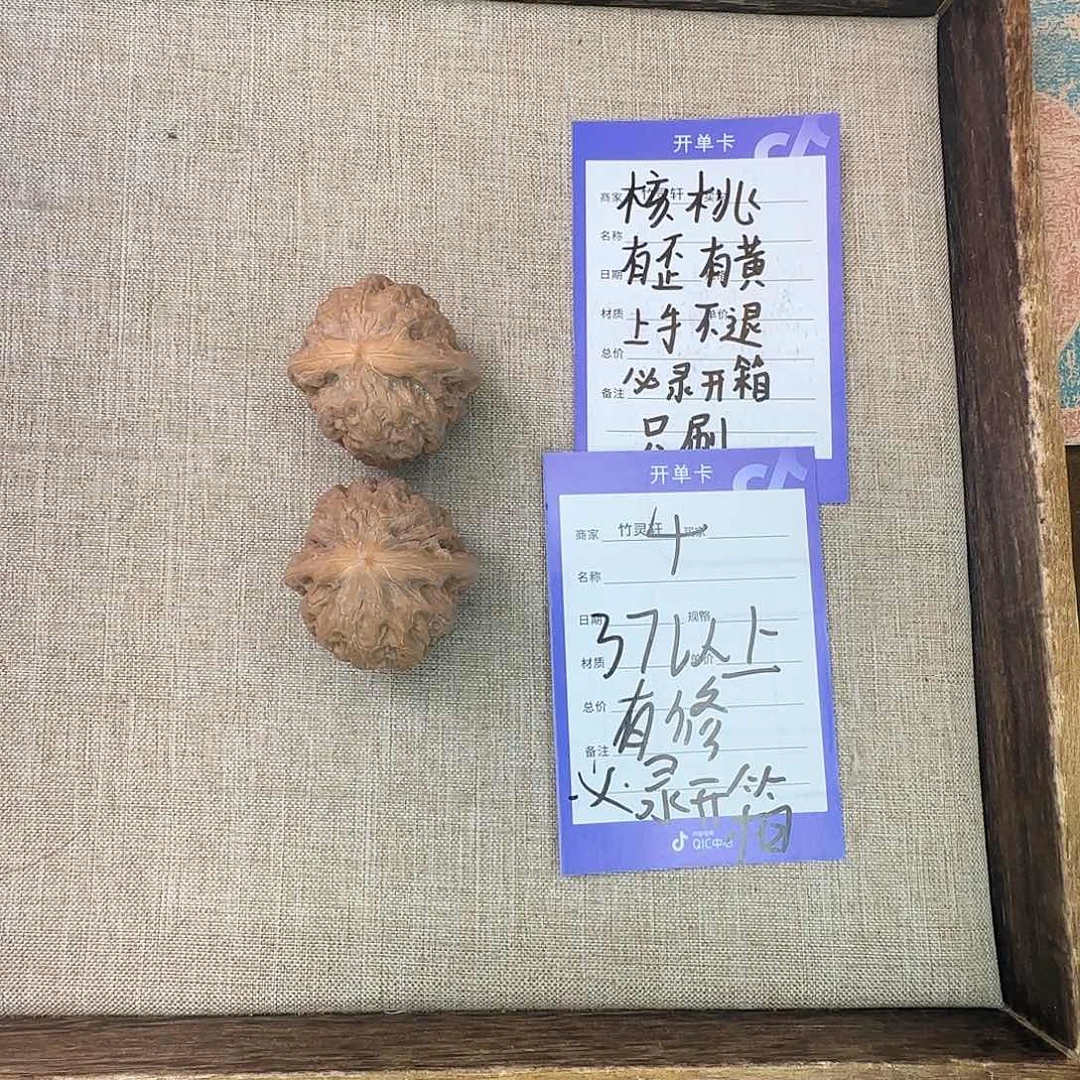 开单卡
商家 竹灵轩
核桃
名称
有歪有黄
日期
材质 单价
上手不退
总价
必录开箱
备注
只刷
开单卡
商家 竹灵轩 买家
4
名称
日期 规格
37以上
材质 单价
总价
有修
备注
必录开箱
QIC中心